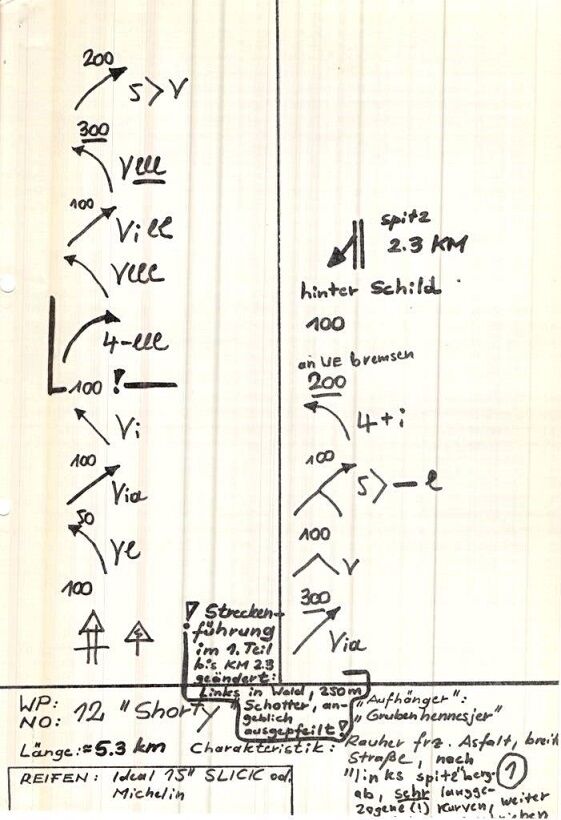 200
s>v
300
veee
100
Viee
veee
4-eee
100 !
Vi
100
Via
50
ve
100
spitz
2.3 KM
hinter Schild
100
an UE bremsen
200
4+i
100
s>-e
100
v
300
Via
! Strecken-
führung
im 1. Teil
bis KM 2.3
geändert:
Links in Wald, 250m
Schotter, an-
geblich
ausgepfeilt!
WP:
NO: 12 "Shorty"
Länge: ≈5.3 km
REIFEN: Ideal 15" SLICK od.
Michelin
"Aufhänger":
"Grubenhennesjer"
Charakteristik: Rauher frz. Asfalt, breite
Straße, nach
"links spitz" berg-
ab, sehr langge-
zogene (!) Kurven, weiter
1